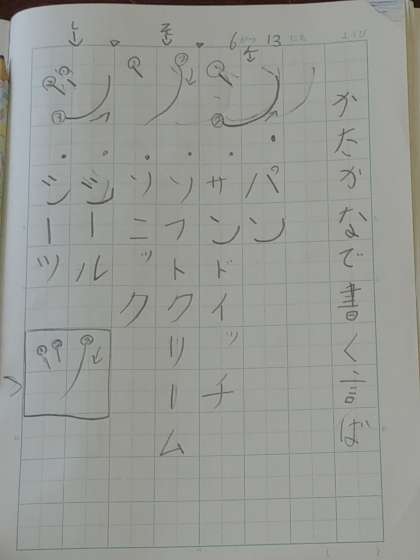 6がつ 13にち
かたかなで書く言ば
ん
パン
サンドイッチ
そ
ソフトクリーム
ソニック
し
シール
シーツ